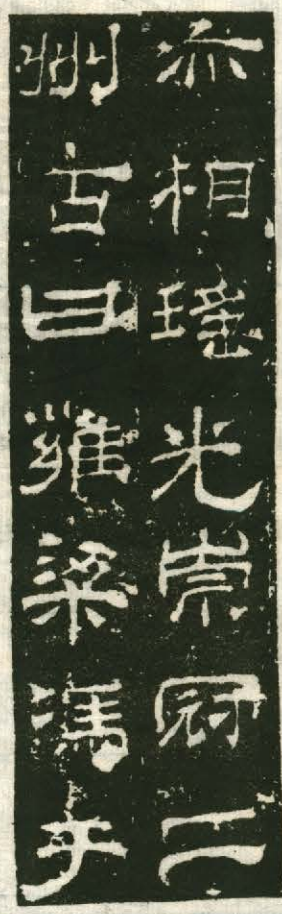 亦相瑤光崇冠二
州古曰雍梁馮于